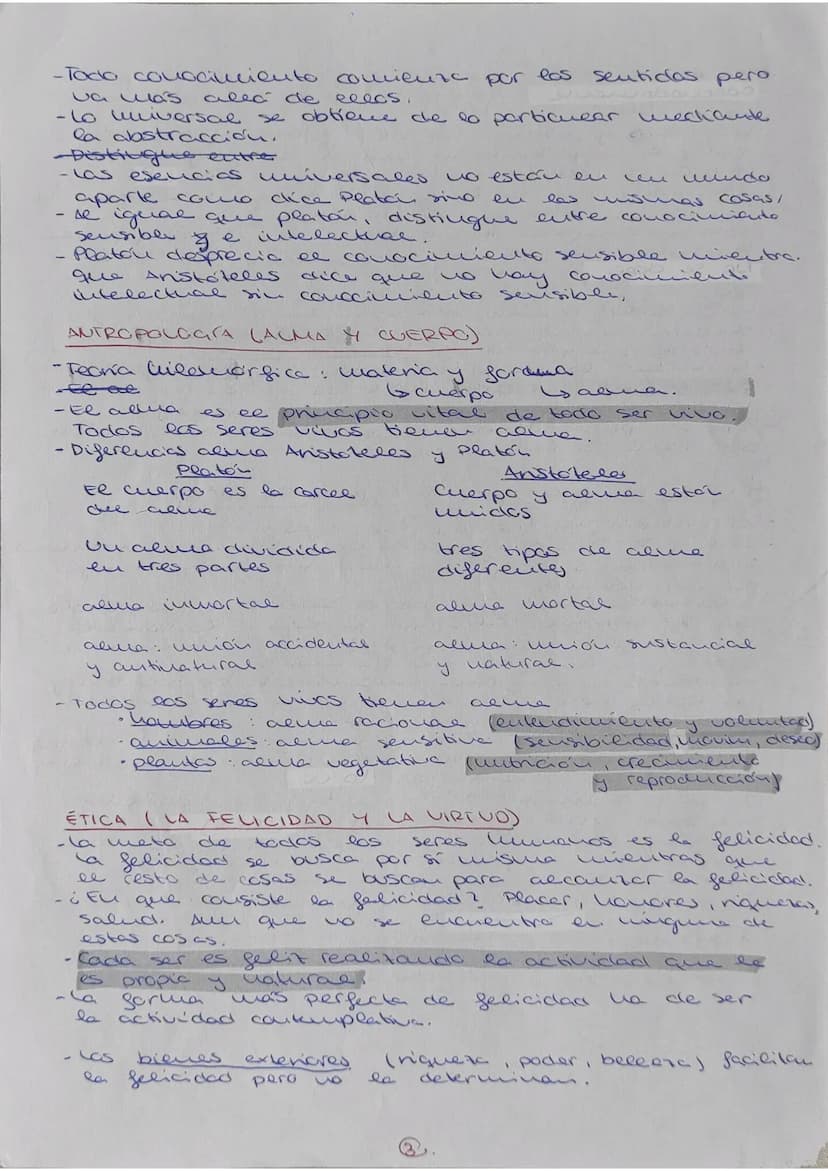 - Todo conocimiento comienza por los sentidos pero
va más allá de ellos.
- Lo universal se obtiene de lo particular mediante
la abstracción.
- Distingue entre
- Las esencias universales no están en un mundo
aparte como dice Platón sino en las mismas cosas,
- Al igual que platón, distingue entre conocimiento
sensible y e intelectual.
- Platón desprecia el conocimiento sensible mientra.
que Aristóteles dice que no hay conocimiento
intelectual sin conocimiento sensible.
ANTROPOLOGÍA (ALMA Y CUERPO)
- Teoría hilemórfica: materia y forma
↳ cuerpo ↳ alma.
- El alma es el principio vital de todo ser vivo.
Todos los seres vivos tienen alma.
- Diferencias alma Aristóteles y Platón
Platón Aristóteles
El cuerpo es la carcel Cuerpo y alma están
del alma unidos
Un alma dividida tres tipos de alma
en tres partes diferentes
alma inmortal alma mortal
alma: unión accidental alma: unión sustancial
y antinatural y natural.
- Todos los seres vivos tienen alma
• hombres: alma racional (entendimiento y voluntad)
· animales: alma sensitiva (sensibilidad, movim, deseo)
• plantas: alma vegetativa (nutrición, crecimiento
y reproducción)
ÉTICA (LA FELICIDAD Y LA VIRTUD)
- La meta de todos los seres humanos es la felicidad.
La felicidad se busca por sí misma mientras que
el resto de cosas se buscan para alcanzar la felicidad.
- ¿En que consiste la felicidad? Placer, honores, riquezas,
salud. Aun que no se encuentra en ninguna de
estas cosas.
- Cada ser es feliz realizando la actividad que le
es propia y natural.
- La forma más perfecta de felicidad ha de ser
la actividad contemplativa.
- Los bienes exteriores (riqueza, poder, belleza) facilitan
la felicidad pero no la determinan.
3.